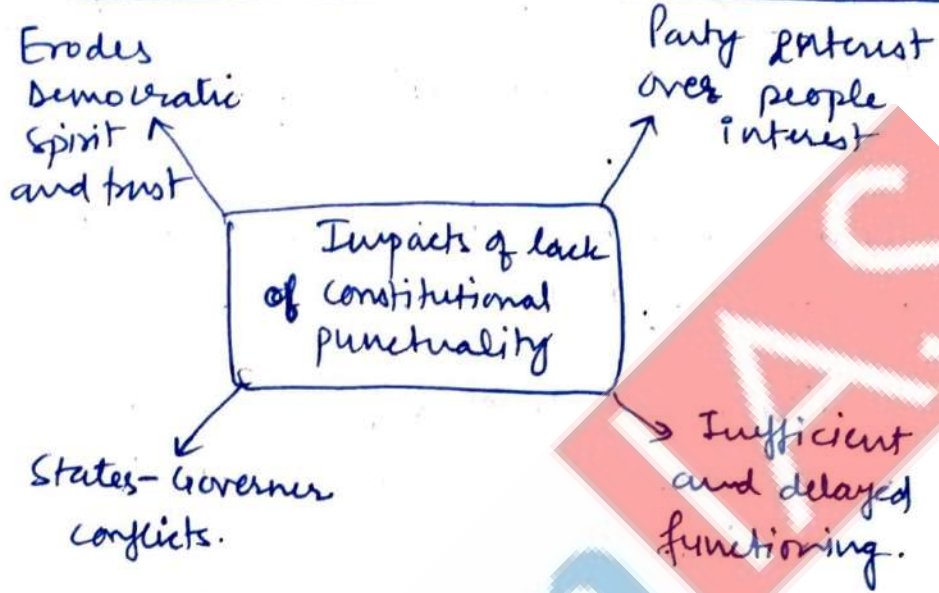 Erodes
Democratic
spirit
and trust
Party interest
over people
interest
Impacts of lack
of constitutional
punctuality
States-Governer
conflicts.
Inefficient
and delayed
functioning.